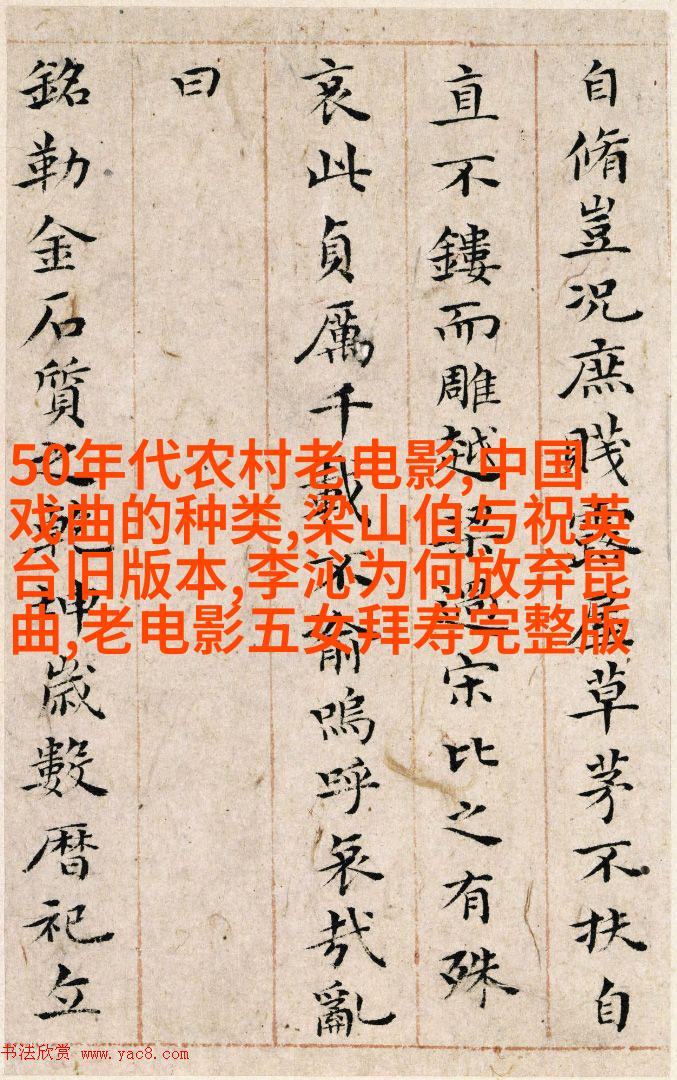 自脩豈況庶賤露屋草茅不扶自
直不鏤而雕越梁過宋比之有殊
哀此貞厲千載不渝嗚呼哀哉亂
曰
銘勒金石質之乾坤歲數暦祀立
50年代农村老电影,中国
戏曲的种类,梁山伯与祝英
台旧版本,李沁为何放弃昆
曲,老电影五女拜寿完整版
书法欣赏 www.yac8.com